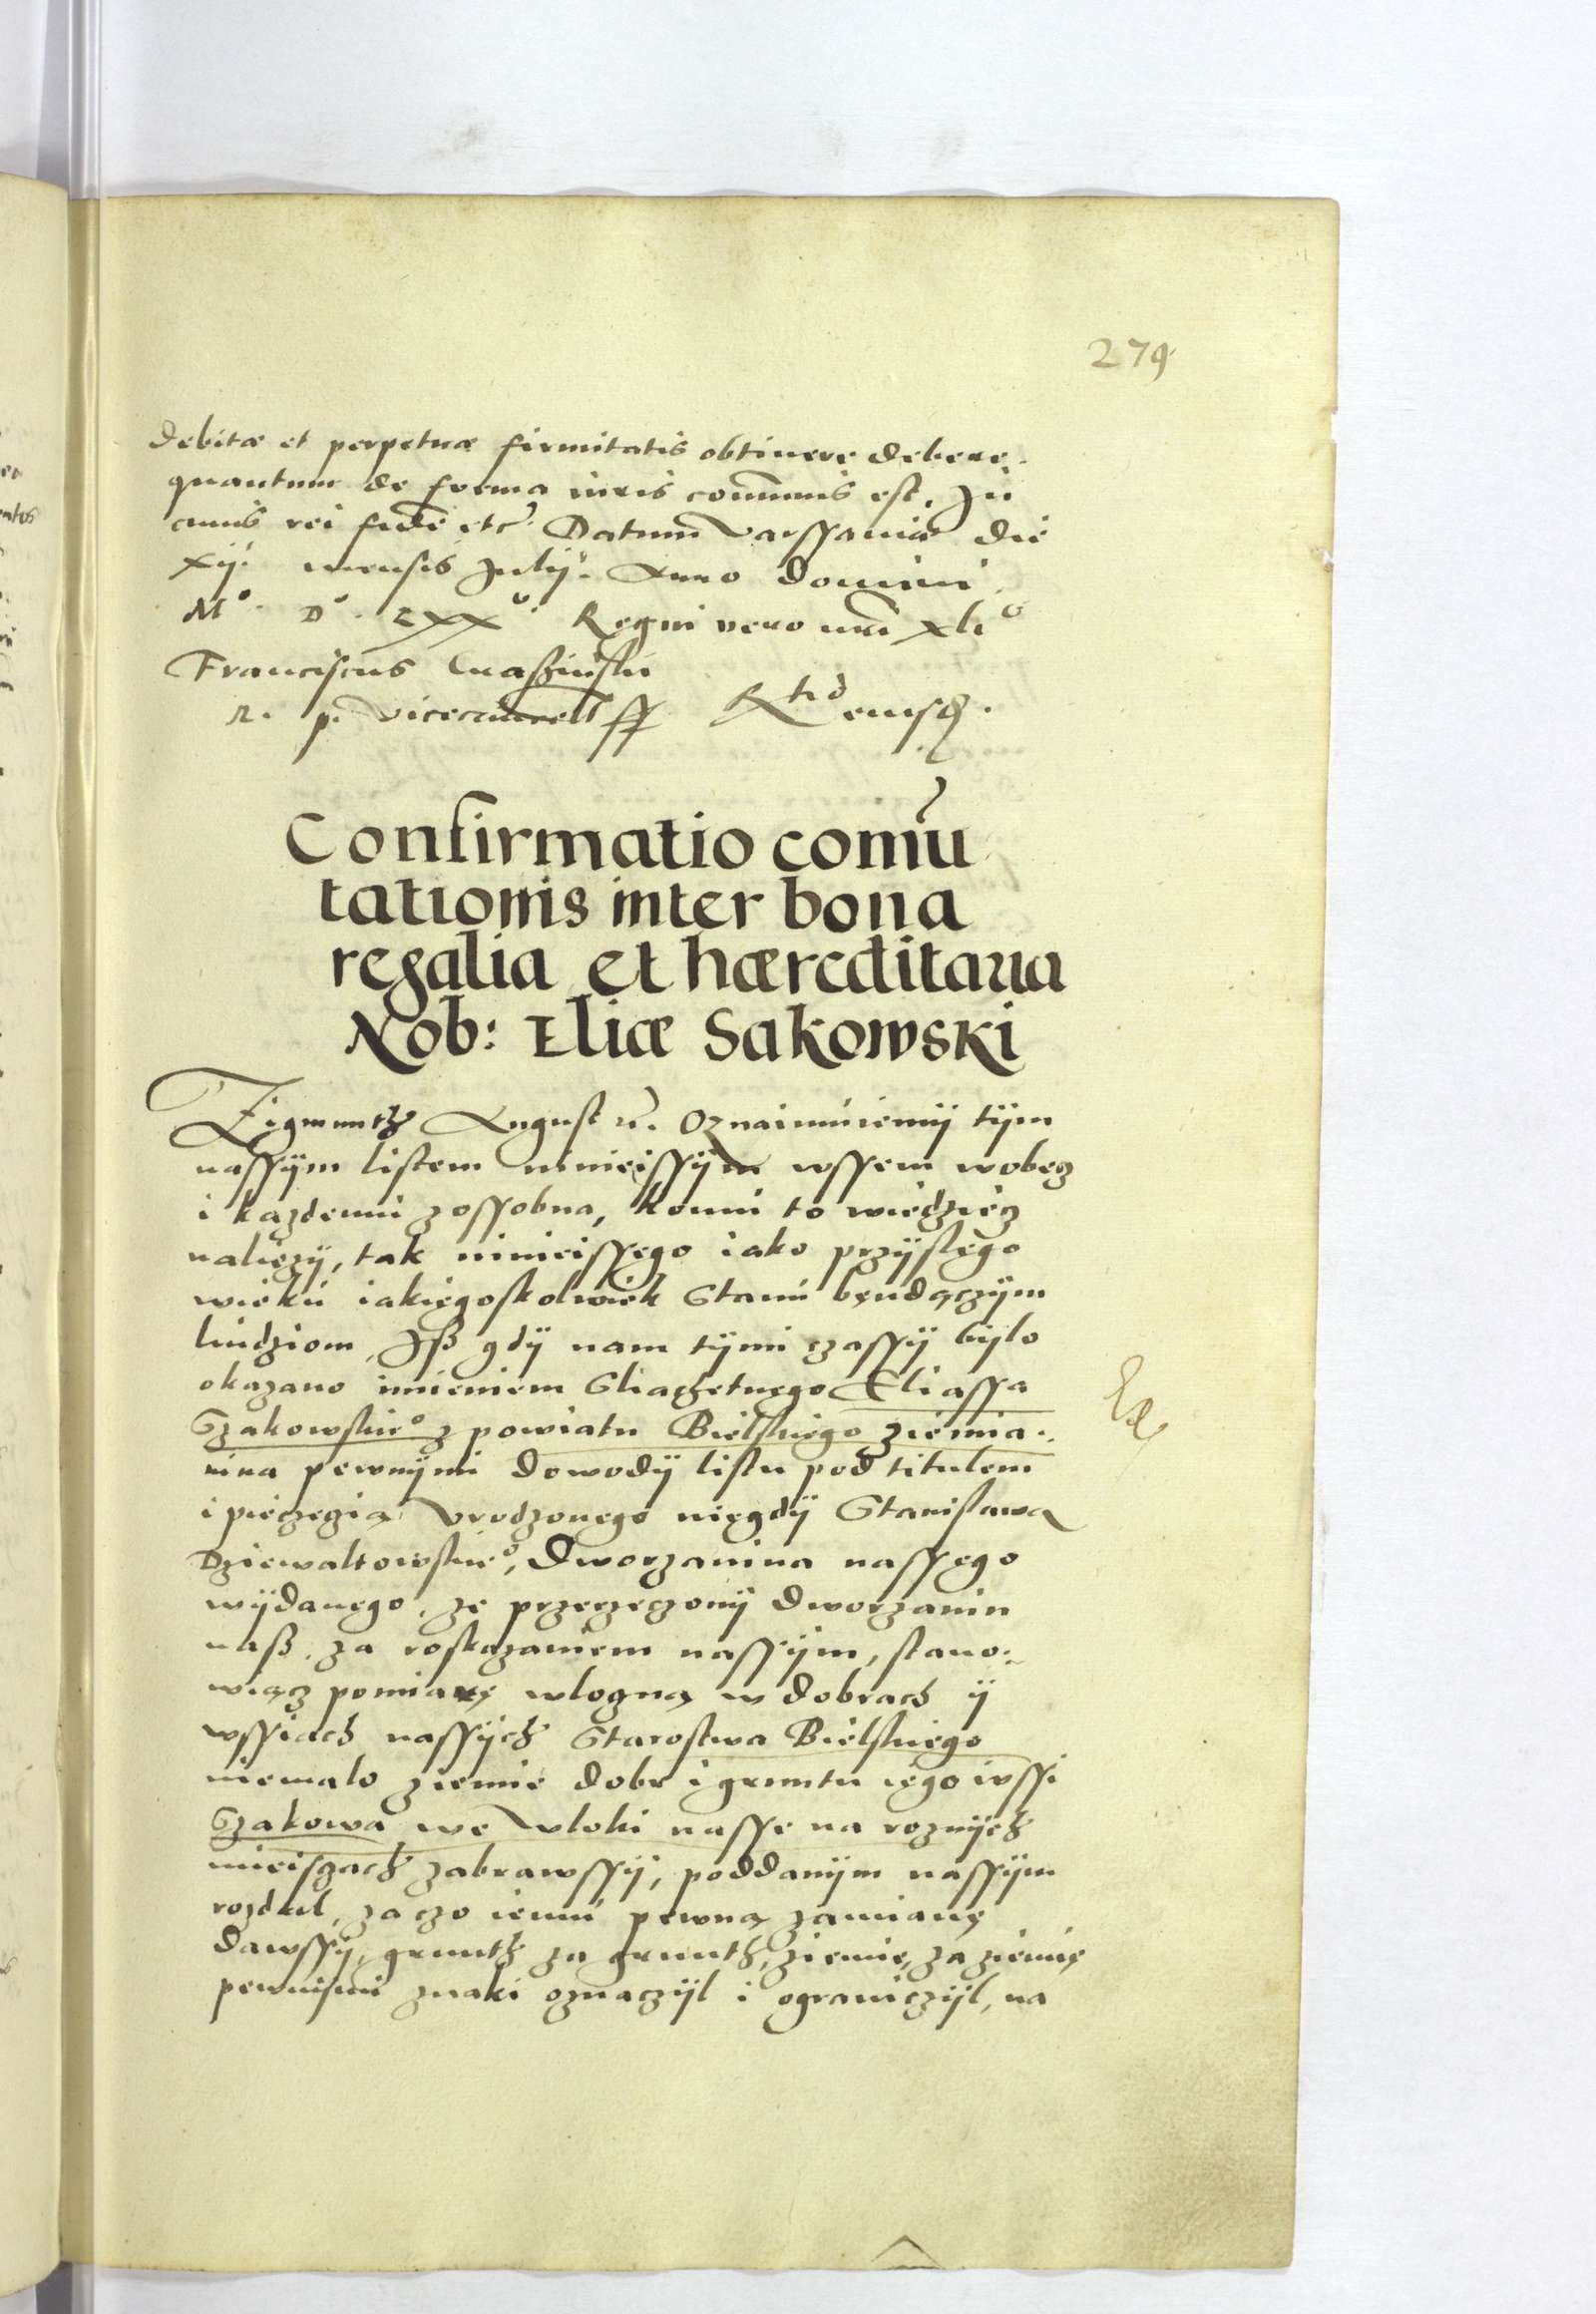 279
debitæ et perpetuæ firmitatis obtinere debere.
quantum de forma iuris communis est. In
cuius rei fidem etc. Datum Varssaviæ die
xij. mensis Julij. Anno Domini
M°. D°. LXX°. Regni vero nri xli°
Franciscus Crassinski
R. p. Vicecancell. sst
Confirmatio comũ
tationis inter bona
regalia et hæreditaria
Nob: Eliæ Sakowski
Zigmunth August etc. Oznaimuiemÿ tÿm
nassÿm listem ninieissÿm wssem wobecz
i kazdemu zossobna, komu to wiedziecz
nalezÿ, tak ninieissego iako przÿslego
wieku iakiegoskolwiek Stanu będączÿm
ludziom, Jß gdÿ nam tÿmi czassÿ bÿlo
okazano imieniem Sliachetnego Eliassa
Szakowskie° z powiatu Bielskiego ziemia:
nina pewnÿmi dowodÿ listu pod titulem
i pieczęcią Vrodzonego niegdÿ Stanisława
Dziewaltowskie°, Dworzanina nassego
wÿdanego, ze przerzeczonÿ Dworzanin
naß, za roskazaniem nassÿm, stano:
wiącz pomiarę wloczną w dobrach ÿ
wssiach nassÿch Starostwa Bielskiego
niemalo ziemie dobr i gruntu iego wssi
Szakowa we Wloki nasse na roznÿch
mieiscach zabrawssÿ, poddanÿm nassÿm
rozdal, za czo iemu pewną zamianę
dawssÿ, grunth za grunth, ziemię za ziemię
pewnimi znaki oznaczÿl i ograniczÿl, na